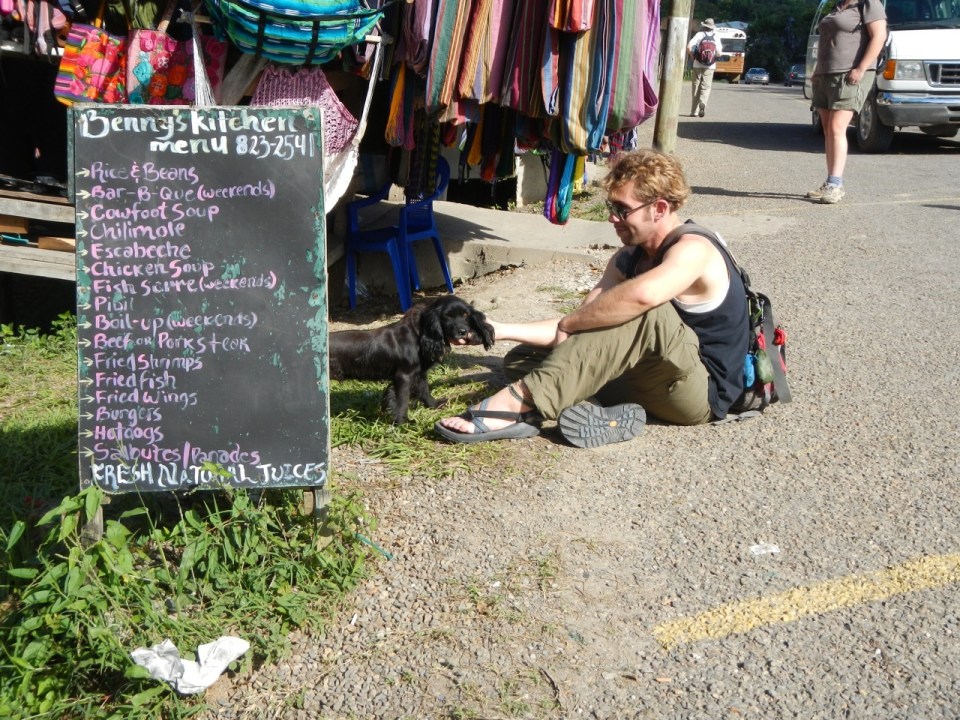 Benny's kitchen
menu 823-2541
→Rice & Beans
→Bar-B-Que (weekends)
→Cowfoot Soup
→Chilimole
→Escabeche
→Chicken Soup
→Fish Serre (weekends)
→Pibil
→Boil-up (weekends)
→Beef or Pork steak
→Fried Shrimps
→Fried fish
→Fried Wings
→Burgers
→Hotdogs
→Salbutes/Panades
FRESH NATURAL JUICES